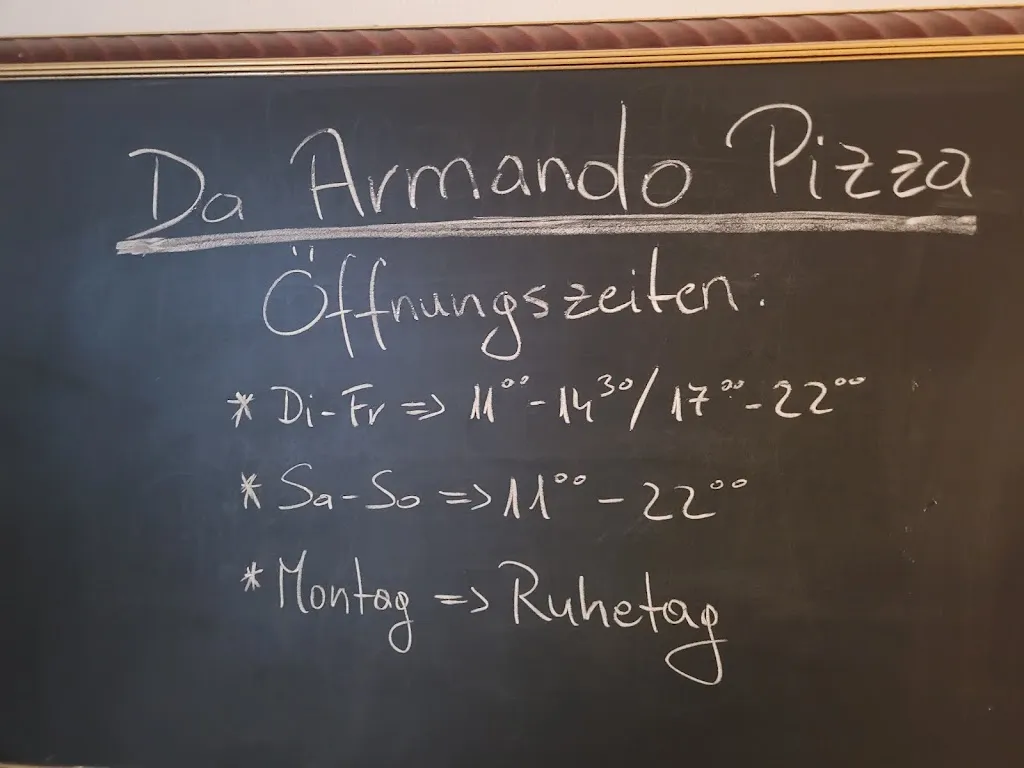 Da Armando Pizza
Öffnungszeiten:
* Di-Fr => 11⁰⁰-14³⁰/17⁰⁰-22⁰⁰
* Sa-So => 11⁰⁰-22⁰⁰
* Montag => Ruhetag